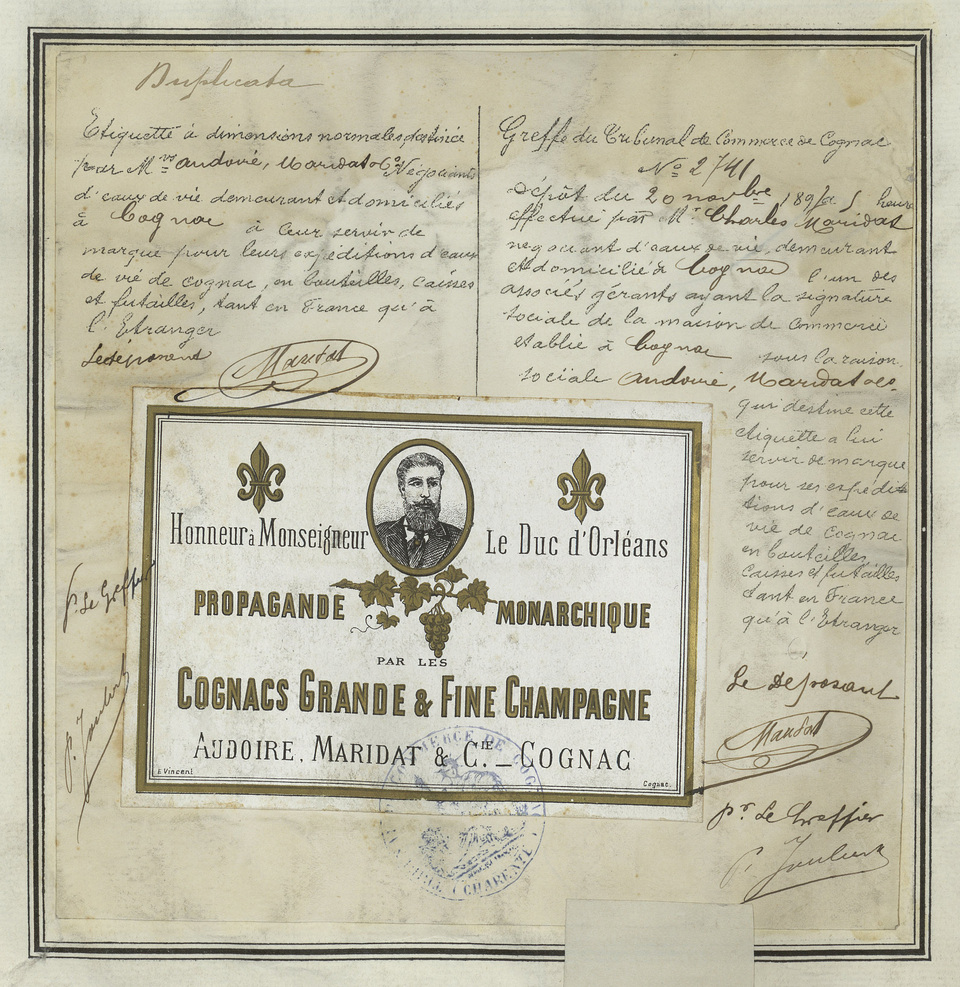 Duplicata
Etiquette à dimensions normales, destinée
par Mrs Audoire, Maridat & Co Négociants
d'eaux de vie demeurant et domiciliés
à Cognac à leur servir de
marque pour leurs expéditions d'eaux
de vie de cognac, en bouteilles, caisses
et futailles, tant en France qu'à
l'Etranger
Le déposant
Maridat
Greffe du Tribunal de Commerce de Cognac
No 2741
Dépôt du 20 novbre 189 à 5 heures
effectué par Mr Charles Maridat
negociant d'eaux de vie, demeurant
et domicilié à Cognac l'un des
associés gérants ayant la signature
sociale de la maison de commerce
etablie à Cognac sous la raison
sociale Audoire, Maridat & Co.
qui destine cette
etiquette a lui
servir de marque
pour ses expédi-
tions d'eaux de
vie de cognac
en bouteilles
caisses et futailles
tant en France
qu'à l'Etranger
Le Déposant
Maridat
pr Le Greffier
P. Joubert
p. Le Greffier
P. Joubert
Honneur à Monseigneur Le Duc d'Orléans
PROPAGANDE MONARCHIQUE
PAR LES
COGNACS GRANDE & FINE CHAMPAGNE
AUDOIRE, MARIDAT & CIE _ COGNAC
E. Vincent Cognac.
COMMERCE DE COGNAC
(CHARENTE)